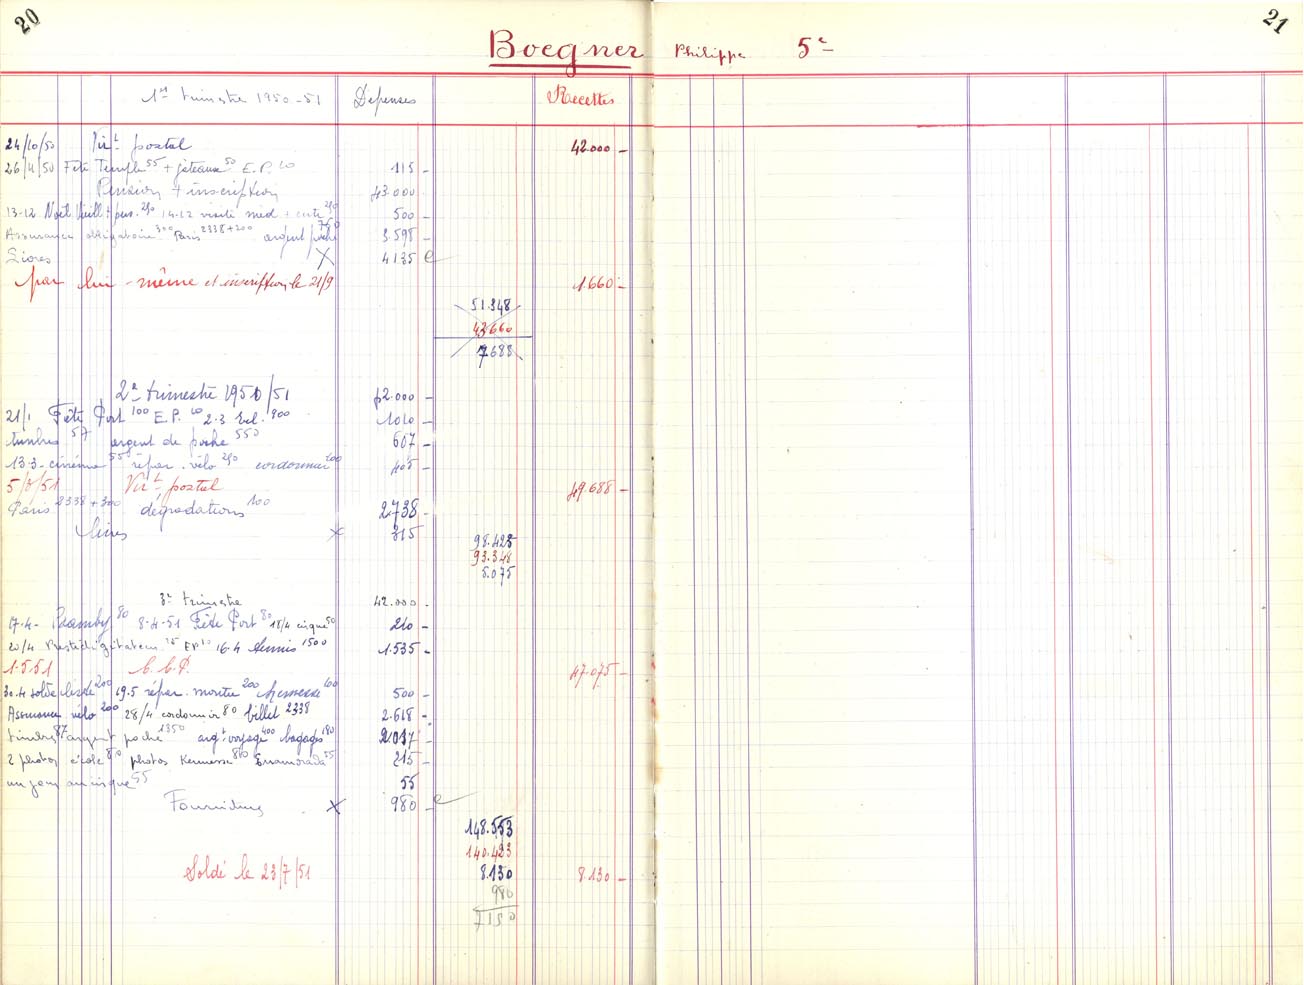 20
21
Boegner Philippe 5e
1er trimestre 1950-51 Dépenses Recettes
24/10/50 Virt postal 42.000 -
26/ /50 Fête Temple 55 + gâteaux 50 E.P. 10 115 -
Pension + inscription 43.000
13-12 Noël 250 14-12 visite méd + 250 500 -
Assurance obligatoire 300 Paris 2338+200 argent poche 750 3.598 -
Livres X 4135
par lui-même et inscription le 21/9 1.660 -
51.348
43660
7688
2e trimestre 1950/51 42.000 -
21/1 Fête Port 100 E.P. 10 2-3 900 1010 -
timbres 57 argent de poche 550 607 -
13-3- cinéma 55 répar. vélo 250 cordonnier 100 405 -
5/ /51 Virt postal 49.688 -
Paris 2338 + 300 dégradations 100 2738 -
livres X 315
98.423
93.348
5.075
3e trimestre 42.000 -
17-4- 80 8-4-51 Fête Port 80 18/4 cirque 50 210 -
20/4 Prestidigitateur 25 EP 10 16-4 tennis 1500 1.535 -
1.5.51 C.C.P. 47.075 -
30.4 solde 200 19.5 répar. montre 200 Kermesse 100 500 -
Assurance vélo 200 28/4 cordonnier 80 billet 2338 2.618 -
timbres 87 argent poche 1350 argt voyage 400 bagages 180 2.017 -
2 photos école 80 photos Kermesse 80 Enamorada 55 215 -
un jour au cirque 55 55
Fournitures X 980 -
148.553
140.423
Soldé le 23/7/51 8.130 8.130 -
980
7150